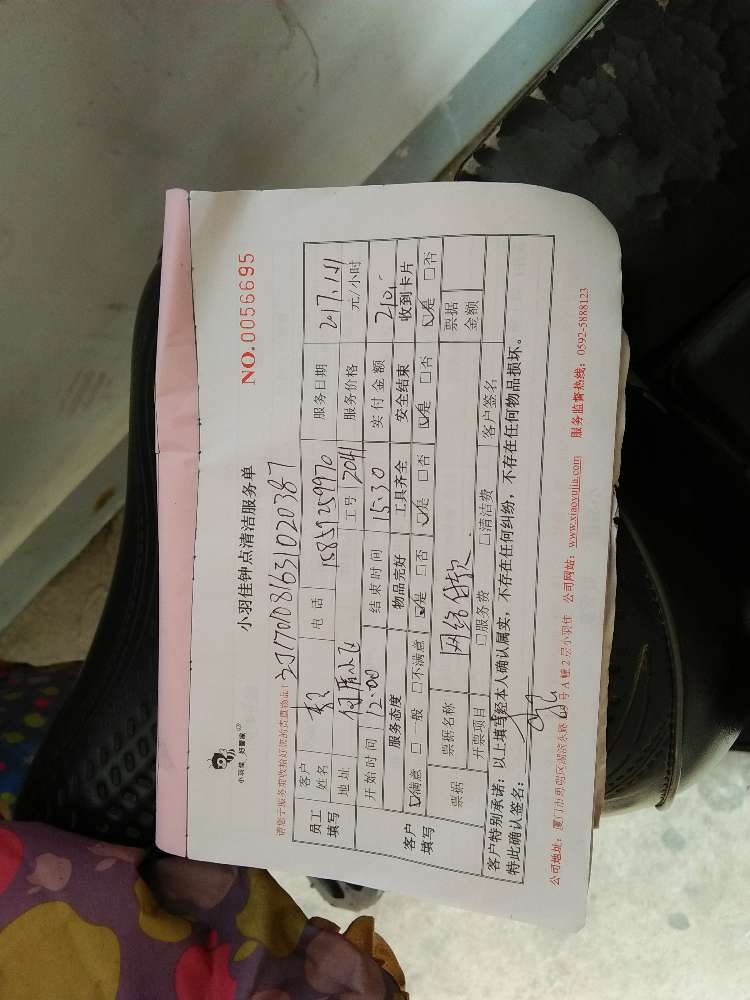 小羽佳 好管家
小羽佳钟点清洁服务单
NO.0056695
请您于服务前收拾好您的贵重物品!
员工填写 客户姓名 电话 服务日期
地址 工号 2041 服务价格 元/小时
客户填写 开始时间 12:00 结束时间 15:30 实付金额
服务态度 物品完好 工具齐全 安全结束 收到卡片
☑满意 □一般 □不满意 ☑是 □否 ☑是 □否 ☑是 □否 ☑是 □否
票据 票据名称 网络付款 票据金额
开票项目 □服务费 □清洁费 客户签名
客户特别承诺:以上填写经本人确认属实,不存在任何纠纷,不存在任何物品损坏。
特此确认签名:
公司地址:厦门市思明区湖滨东路 号A幢2层小羽佳 公司网站:www.xiaoyujia.com 服务监督热线:0592-5888123